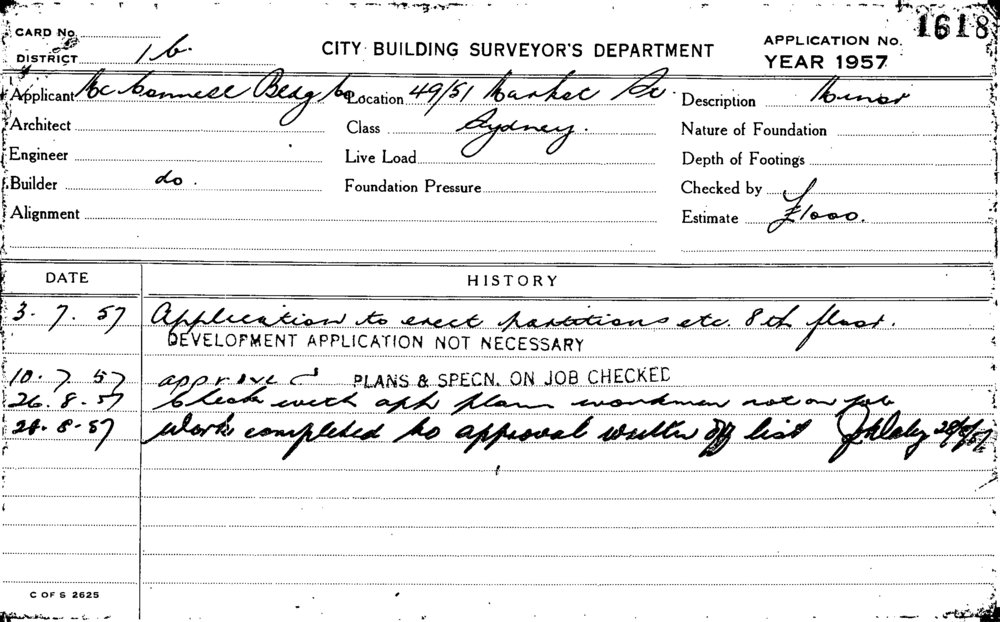 CARD No.
1618
DISTRICT 1b.
CITY BUILDING SURVEYOR'S DEPARTMENT
APPLICATION No.
YEAR 1957
Applicant Mc Connell Bldg Co. Location 49/51 Market St. Description Minor
Architect Class Sydney. Nature of Foundation
Engineer Live Load Depth of Footings
Builder do. Foundation Pressure Checked by
Alignment Estimate £1000.
DATE HISTORY
3. 7. 57 Application to erect partitions etc. 8th floor.
DEVELOPMENT APPLICATION NOT NECESSARY
10. 7. 57 approved PLANS & SPECN. ON JOB CHECKED
26. 8. 57 Check with plan workman not on job
28. 8. 57 Work completed to approval written off list 28/8/57
C OF S 2625